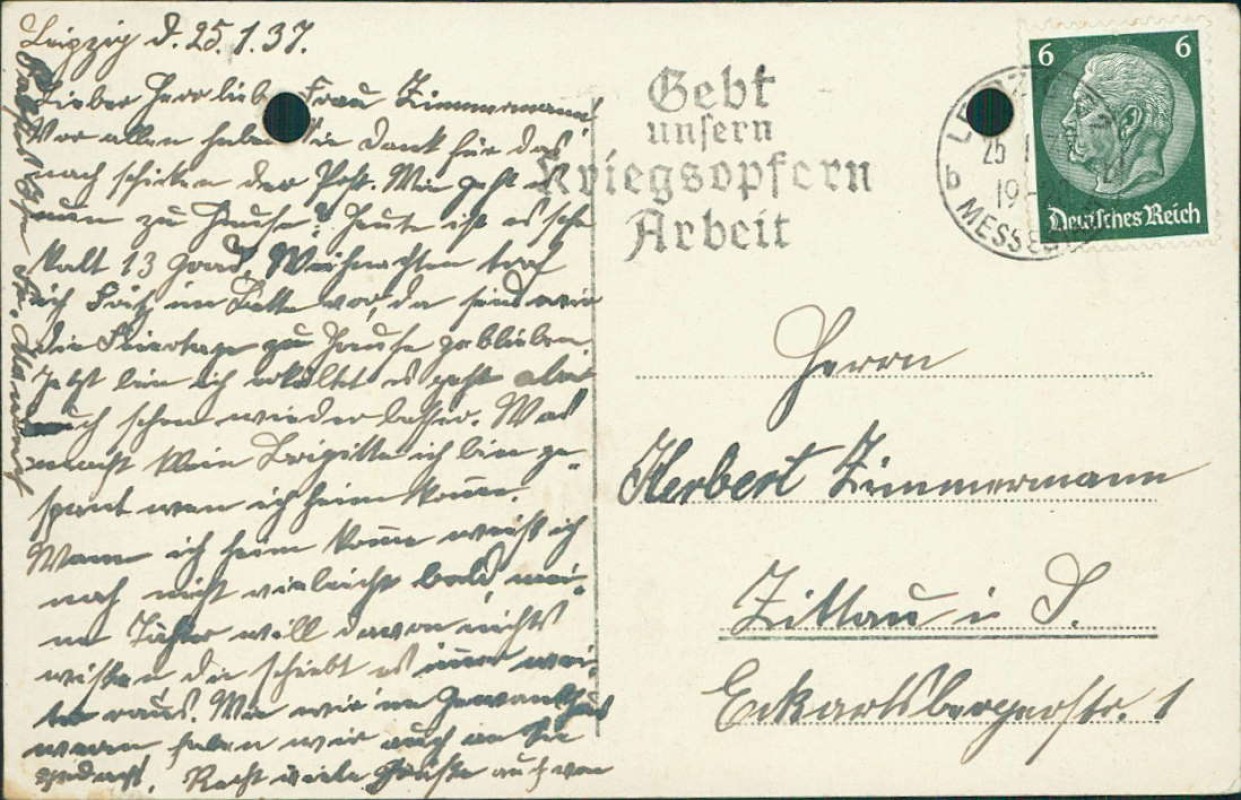 Leipzig d. 25.1.37.
Lieber Herr liebe Frau Zimmermann!
Vor allen haben Sie Dank für das
nach schicken der Post. Wie geht es
nun zu Hause? Heute ist es sehr
kalt 13 Grad, Weihnachten traf
ich Fritz im Bette vor, da sind wir
die Feiertage zu Hause geblieben
Jetzt bin ich erkältet es geht aber
auch schon wieder besser. Was
macht klein Brigitte ich bin ge-
spant wen ich heim kome.
Wann ich heim kome weiß ich
noch nicht vieleicht bald, mei-
ne Tochter will davon nichts
wissen die schiebt es imer wei-
ter raus. Wie wir im Gewandhaus
waren haben wir auch an Sie
gedacht. Recht viele Grüße auch von
Ihre Fr.
Gebt
unsern
Kriegsopfern
Arbeit
LEIPZIG
25 1
19-20
b
MESSES
6 6
Deutsches Reich
Herrn
Herbert Zimmermann
Zittau i. S.
Eckartsbergerstr. 1